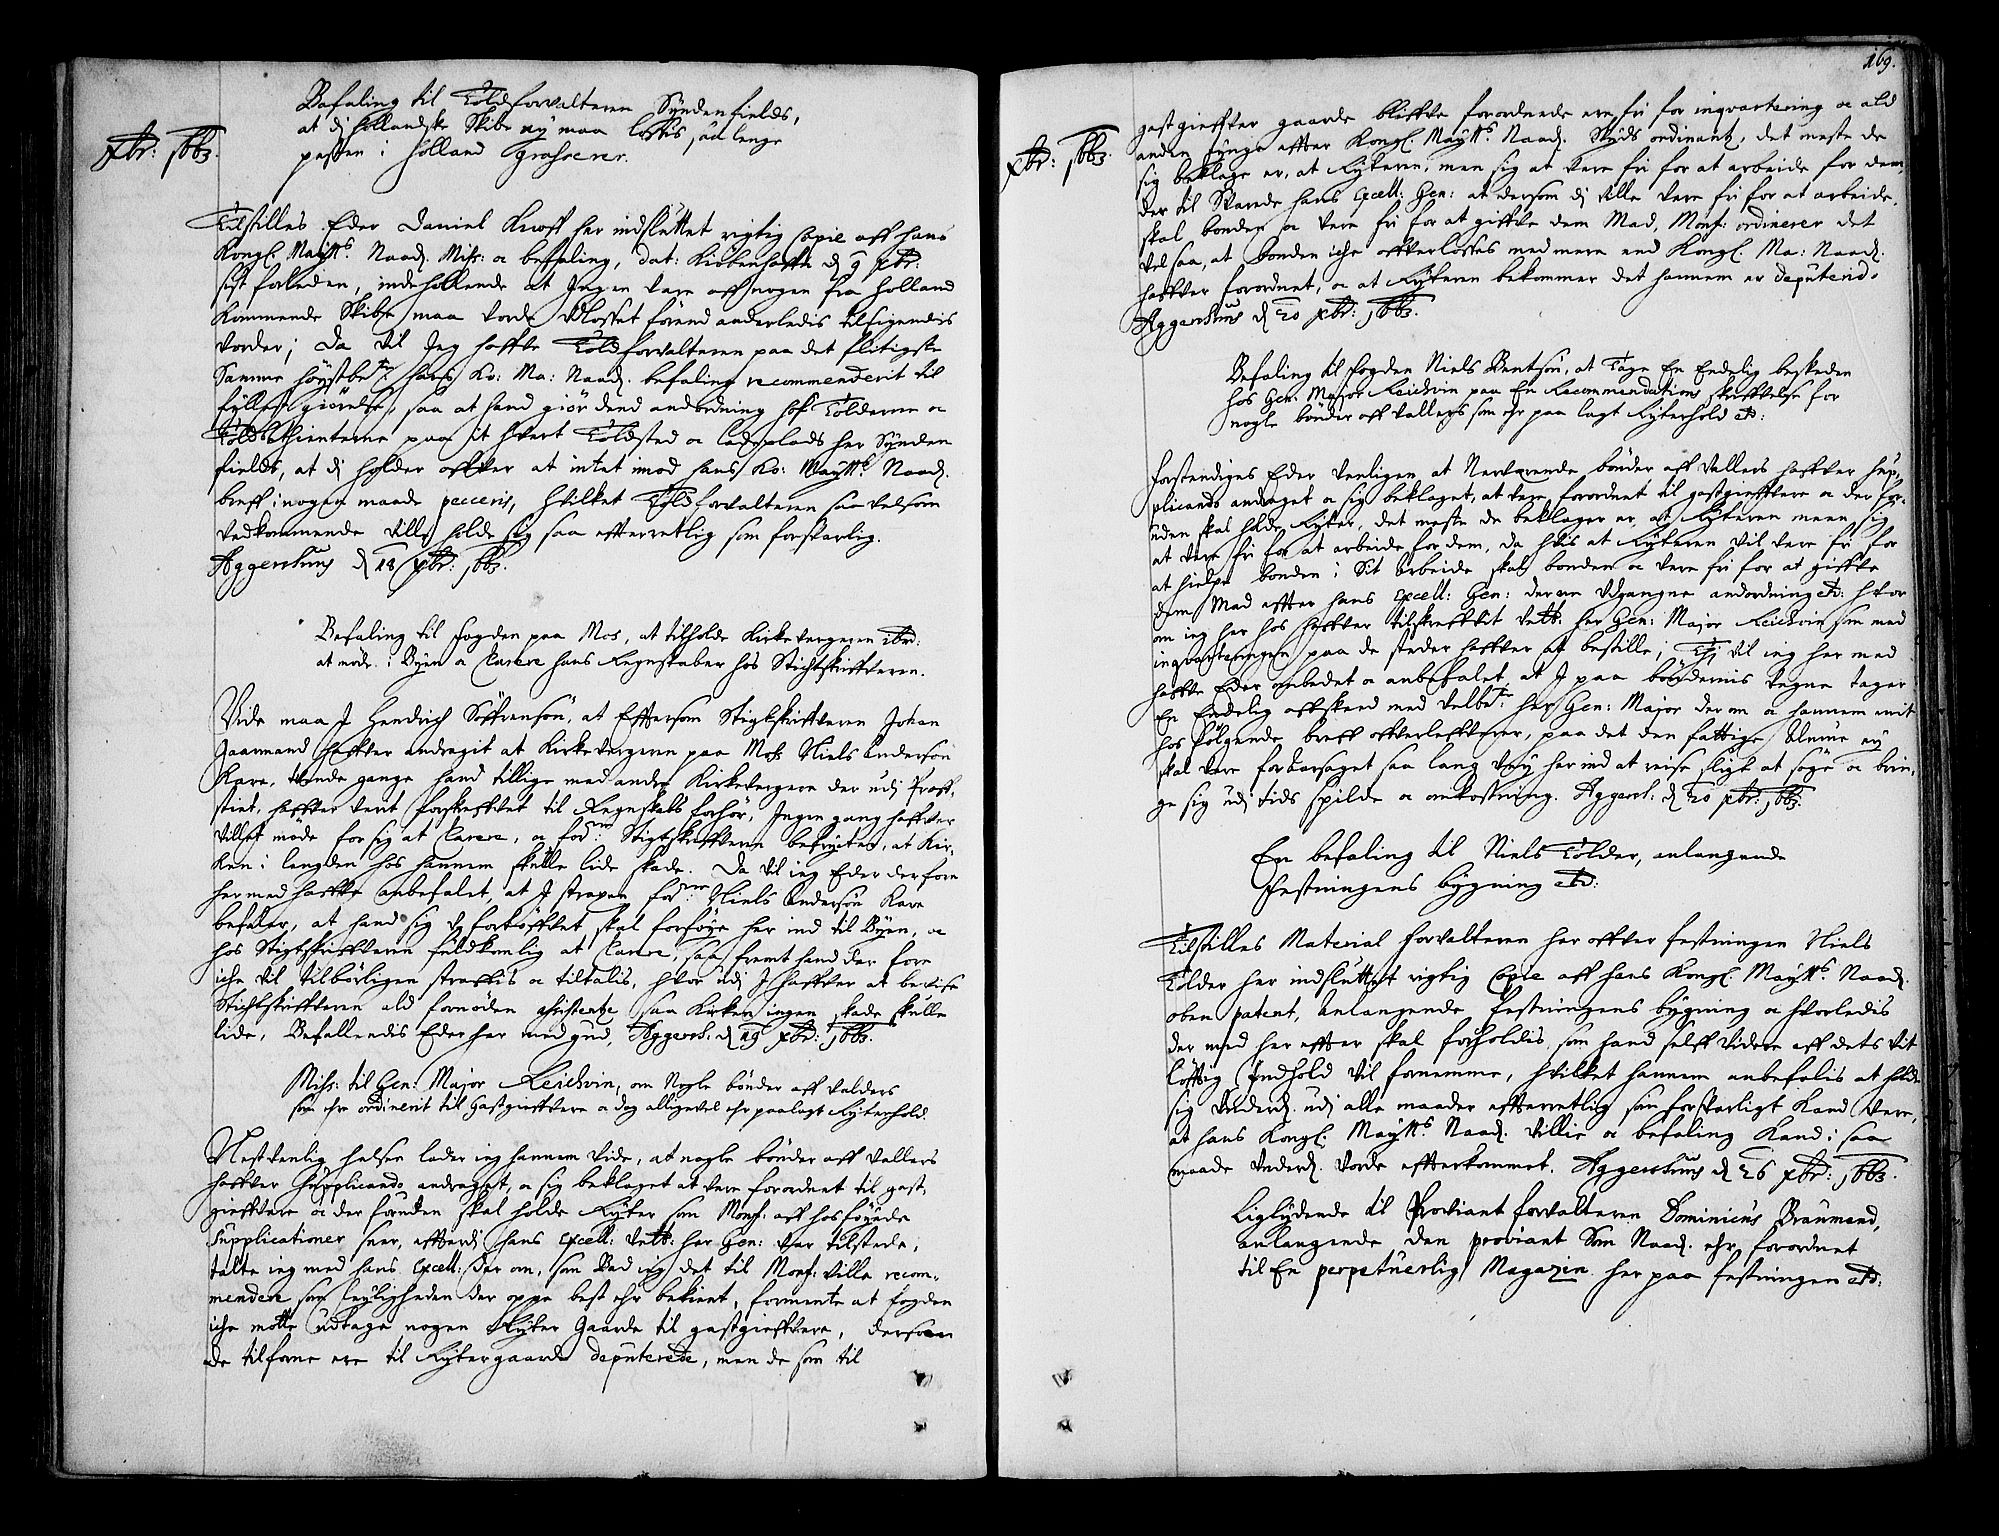 Befaling til Toldforvalteren Syndenfields,
at dj hollandske Skibe ey maa lossis, saa lenge
pesten i Holland grasserer.
xbr: 1663.
Tilstilles Eder Daniel Knoff her indsluttet rigtig Copie aff hans
Kongl. Maytts. Naad. Miss: oc befaling, dat: Kiøbenhaffn d 9 xbr:
sist forleden, indeholdende at Ingen vare aff nogen fra Holland
kommende Skibe maa vorde udlosset førend anderledis tilsigendis
vorder; Da vil Jeg haffve Toldforvalteren paa det flitigste
Samme høystbete: hans Ko: Ma: Naad. befaling recommenderit til
fyllest giørelse, saa at hand giør dend andordning hos Tolderne oc
Toldbethienterne paa it hvert Toldsted oc ladeplads her Synden
fields, at dj holder offver at intet imod hans Ko: Maytts. Naad.
breff i nogen maade peceris, hvilket Toldforvalteren saa velsom
Vedkommende ville holde sig saa effterretlig som forsvarlig.
Aggershuus d 18 xbr: 1663.
Befaling til fogden paa Mos, at tilholde Kirkevergeren ibd:
at møde i Byen oc Clarere hans Regnskaber hos Stichtskriffveren.
Vide maa J Hendrich Søffrensøn, at Efftersom Stigtskriffveren Johan
Gaarmand haffver andragit at Kirkevergeren paa Moss Niels Andersøn
Kare, tvende gange hand tillige med andre Kirkevergere der udj Proff-
stiet, haffver verit forskreffvet til Regnskabs forhør, Ingen gang haffver
villet møde for sig at Clarere, oc forne: Stigtskriffveren befrygter, at Kir-
ken i lengden hos hannem skulle lide skade. Da vil ieg Eder derfore
hermed haffve anbefalet, at J strapen forne: Niels Andersøn Kare
befaler, at hand sig ufortøffvet skal forføye her ind til Byen, oc
hos Stigtskriffveren fuldkomlig at Clarere, saa fremt hand der fore
iche vil tilbørligen straffis oc tiltalis, hvor udj J haffver at bevise
Stichtskriffveren ald fornøden assistentze saa Kirken ingen skade skulle
lide, Befallendis Eder her med gud, Aggersh: d 19 xbr: 1663.
Miss: til Gen: Major Reichvin, om Nogle bønder aff Valders
som ehr ordinerit til Gastgieffvere oc dog alligevel ehr paalagt Rytterhold.
Nest venlig helsen lader ieg hannem vide, at nogle bønder aff Vallers
haffver Supplicando andraget, oc sig beklaget at vere forordnet til gast-
gieffvere oc der foruden skal holde Rytter som Mons: aff hosføyede
Supplicationer seer, effterdj hans Excell: velb: her Gen: var tilstede,
talte ieg med hans Excell: der om, som bad ieg det til Mons: ville recom-
mendere som leyligheden der oppe best ehr bekient, formente at fogden
iche motte udtage nogen Rytter Gaarde til gastgieffvere, dersom
de tilforne ere til Ryttergaarde deputerede, men de som til
169.
xbr: 1663.
gastgieffver gaarde bliffve forordnede ere fri for inqvartering oc ald
anden tynge effter Kongl. Maytts. Naad. Skyds ordinantz, det meste de
sig beklage er, at Rytteren, men sig at vere fri for at arbeide for dem,
der til Svarede hans Excell: Gen: at dersom dj ville vere fri for at arbeide,
skal bonden oc vere fri for at giffve dem Mad, Mons: ordinerer det
vel saa, at bonden iche offverlastes med mere end Kongl. Ma: Naad.
haffver forordnet, oc at Rytteren bekommer det hannem er deputerid.
Aggershuus d 20 xbr: 1663.
Befaling til fogden Niels Bentsøn, at Tage En Endelig beskeden
hos Gen: Major Reichvin paa En Recommendations skriffvelse for
nogle bønder aff Vallers som ehr paa lagt Rytterhold etc:
Forstendiges Eder venligen at Nerverende bønder aff Vallers haffver sup-
plicando andraget oc sig beklaget, at vere forordnet til gastgieffvere oc der for-
uden skal holde Rytter, det meste de beklager er, at Rytteren meen sig
at vere fri for at arbeide for dem, da hvis at Rytteren vil vere fri for
at hielpe bonden i Sit arbeide skal bonden oc vere fri for at giffve
dem Mad effter hans Excell: Gen: derom Udgangne andordning etc: hvor
om ieg her hos haffver tilskreffvet velb: her Gen: Major Reichvin som med
inqvarteringen paa de steder haffver at bestille; Thj vil ieg her med
haffve Eder ombedet oc anbefalet, at J paa bøndernis vegne tager
En Endelig affskeed med velbne: her Gen: Major der om oc hannem mit
hos følgende breff offverleffverer, paa det den fattige Almue ey
skal vere forarsaget saa lang vey her ind at reise sligt at søge oc brin-
ge sig udj tids spilde oc omkostning. Aggersh: d 20 xbr: 1663.
En befaling til Niels Tolder, anlangende
Festningens bygning etc:
Tilstilles Material forvalteren her offver festningen Niels
Tolder her indsluttet rigtig Copie aff hans Kongl. Maytts. Naad.
oben patent, anlangende festningens bygning oc hvorledis
der med her effter skal forholdis, som hand selff videre aff dets vit
løfftig Indhold vil fornemme, hvilket hannem anbefalis at holde
sig underd. udj alle maader effterretlig som forsvarligt kand vere,
at hans Kongl. Maytts. Naad. villie oc befaling kand i saa
maade underd. vorde effterkommet. Aggershuus d 26 xbr: 1663.
Liglydende til Proviant forvalteren Dominicus Braumand,
anlangende den proviant Som Naad. ehr forordnet
til En perpetuerlig Magazin her paa festningen etc: